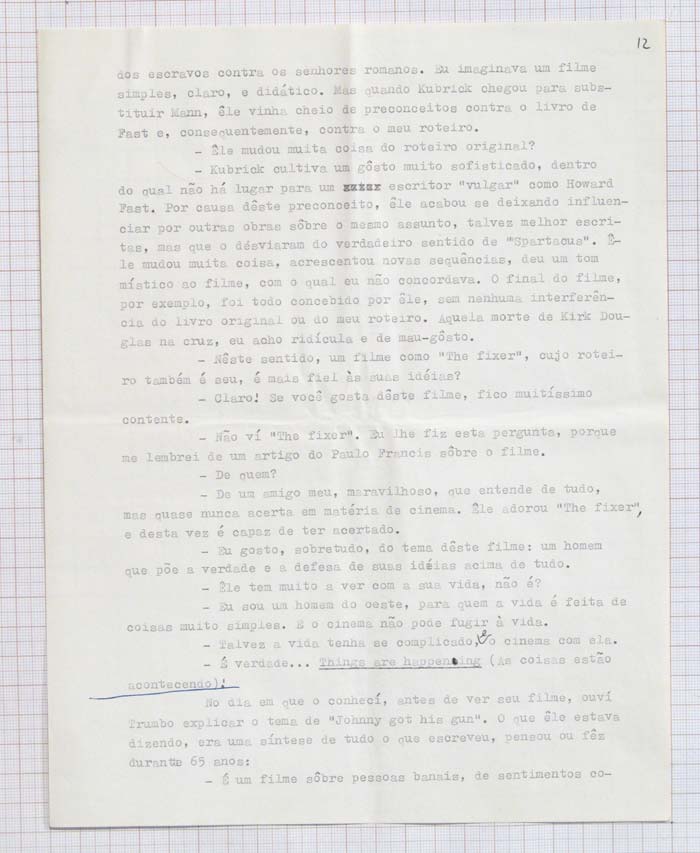 12
dos escravos contra os senhores romanos. Eu imaginava um filme
simples, claro, e didático. Mas quando Kubrick chegou para subs-
tituir Mann, êle vinha cheio de preconceitos contra o livro de
Fast e, consequentemente, contra o meu roteiro.
- Êle mudou muita coisa do roteiro original?
- Kubrick cultiva um gôsto muito sofisticado, dentro
do qual não há lugar para um escritor "vulgar" como Howard
Fast. Por causa dêste preconceito, êle acabou se deixando influen-
ciar por outras obras sôbre o mesmo assunto, talvez melhor escri-
tas, mas que o désviaram do verdadeiro sentido de "Spartacus". Ê-
le mudou muita coisa, acrescentou novas sequências, deu um tom
místico ao filme, com o qual eu não concordava. O final do filme,
por exemplo, foi todo concebido por êle, sem nenhuma interferên-
cia do livro original ou do meu roteiro. Aquela morte de Kirk Dou-
glas na cruz, eu acho ridícula e de mau-gôsto.
- Nêste sentido, um filme como "The fixer", cujo rotei-
ro também é seu, é mais fiel às suas idéias?
- Claro! Se você gosta dêste filme, fico muitíssimo
contente.
- Não ví "The fixer". Eu lhe fiz esta pergunta, porque
me lembrei de um artigo do Paulo Francis sôbre o filme.
- De quem?
- De um amigo meu, maravilhoso, que entende de tudo,
mas quase nunca acerta em matéria de cinema. Êle adorou "The fixer",
e desta vez é capaz de ter acertado.
- Eu gosto, sobretudo, do tema dêste filme: um homem
que põe a verdade e a defesa de suas idéias acima de tudo.
- Êle tem muito a ver com a sua vida, não é?
- Eu sou um homem do oeste, para quem a vida é feita de
coisas muito simples. E o cinema não pode fugir à vida.
- Talvez a vida tenha se complicado, e o cinema com ela.
- É verdade... Things are happening (As coisas estão
acontecendo)!
No dia em que o conhecí, antes de ver seu filme, ouví
Trumbo explicar o tema de "Johnny got his gun". O que êle estava
dizendo, era uma síntese de tudo o que escreveu, pensou ou fêz
durante 65 anos:
- É um filme sôbre pessoas banais, de sentimentos co-